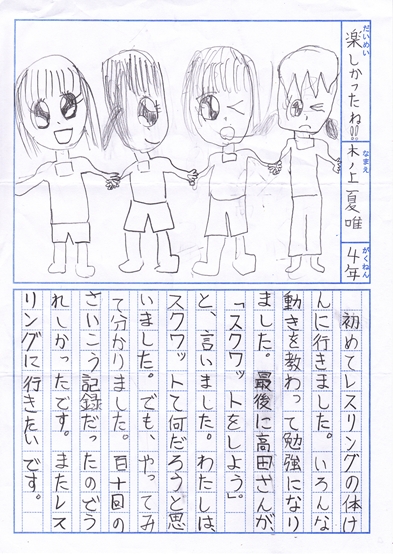 だいめい
楽しかったね!!
なまえ
木ノ上夏唯
がくねん
4年
初めてレスリングの体け
んに行きました。いろんな
動きを教わって勉強になり
ました。最後に高田さんが
「スクワットをしよう」
と、言いました。わたしは、
スクワットて何だろうと思
いました。でも、やってみ
て分かりました。百十回の
さいこう記録だったのでう
れしかったです。またレス
リングに行きたいです。